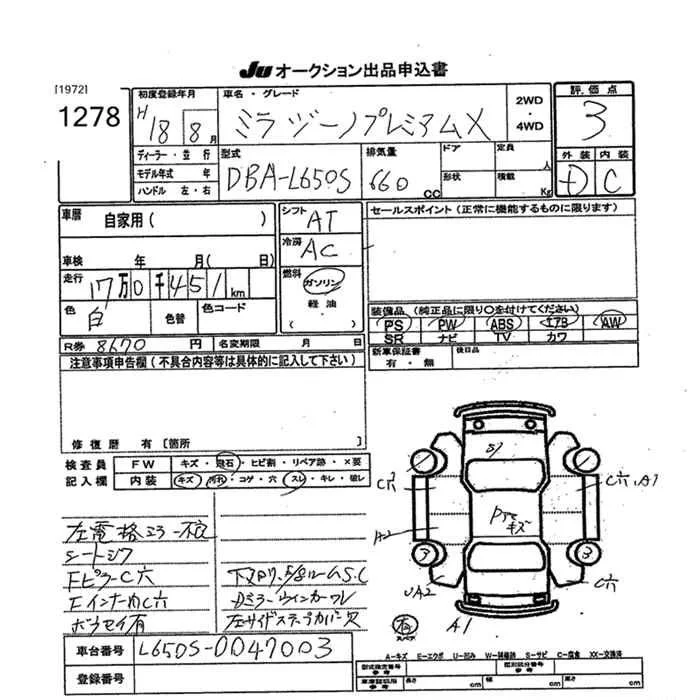 JU オークション出品申込書
[1972]
1278
初度登録年月
H 18 8月
車名・グレード
ミラ ジーノプレミアムX
2WD
・
4WD
評価点
3
ディーラー・並行
モデル年式 年
ハンドル 左・右
型式
DBA-L650S
排気量
660 CC
ドア
定員
人
形状
積載
Kg
外装 内装
D C
車暦 自家用( )
シフト AT
セールスポイント(正常に機能するものに限ります)
車検 年 月( 日)
冷房 AC
走行 17万0千451km
燃料
ガソリン
軽油
( )
色 白 色替 色コード
R券 8670 円 名変期限 月 日
装備品(純正品に限り○を付けてください)
PS PW ABS エアB AW
SR ナビ TV カワ
新車保証書 有・無 後日品
注意事項申告欄(不具合内容等は具体的に記入して下さい)
修復歴 有[箇所 ]
検査員 FW キズ・飛石・ヒビ割・リペア跡・×要
記入欄 内装 キズ・汚れ・コゲ・穴・スレ・キレ・破レ
左電格ミラー不良
シートシワ
FピラーC穴
Fインナー内C穴
ボウセイ有
Dミラーウインカーワレ
左サイドステップカバー欠
S1
C穴
C穴, A1
A2
Pえぐキズ
3
3
UA2
C穴
A1
有
スペア
車台番号 L650S-0047003
登録番号
A-キズ E-エクボ U-凹み W-補修跡 S-サビ C-腐食 XX-交換済
型式指定番号
参考
類別区分番号
参考
車庫証明用
参考
長さ cm 幅 cm 高さ cm